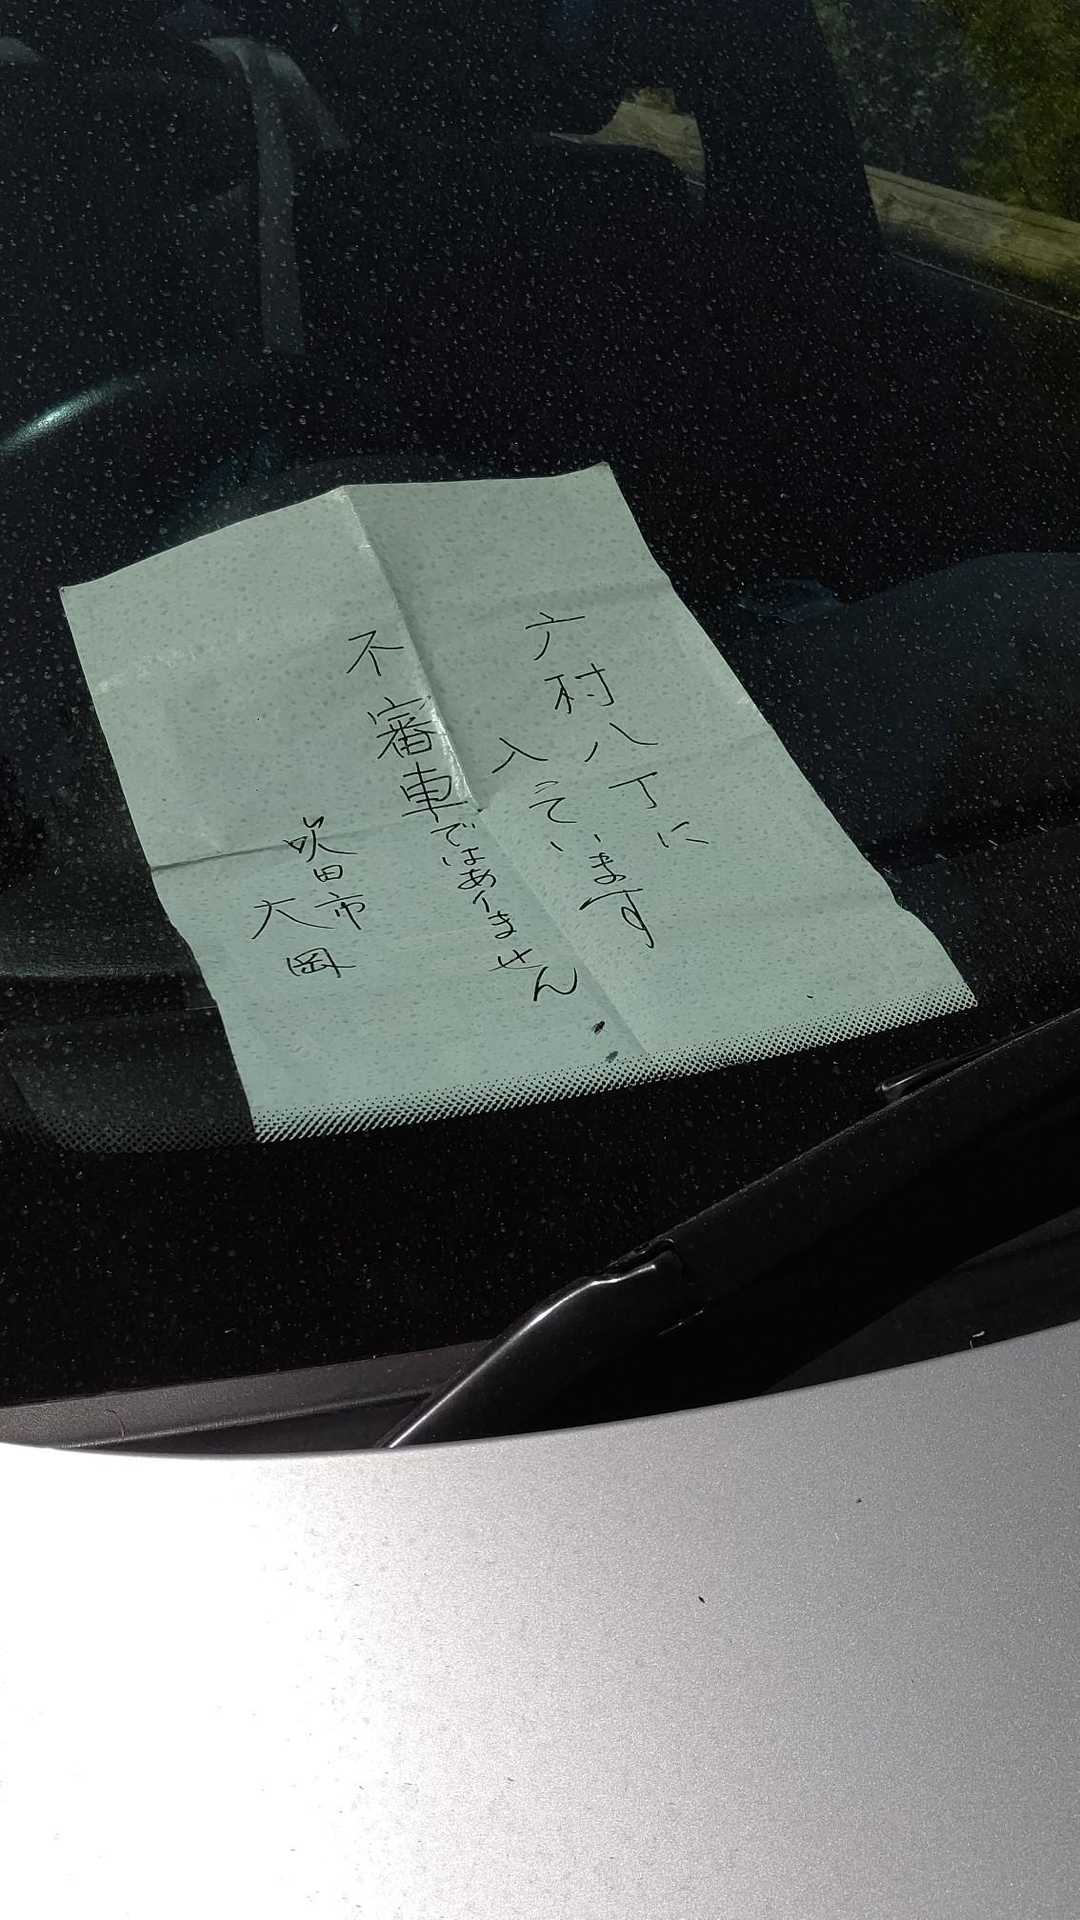 广村八丁に
入っています
不審車ではありません
吹田市
大岡